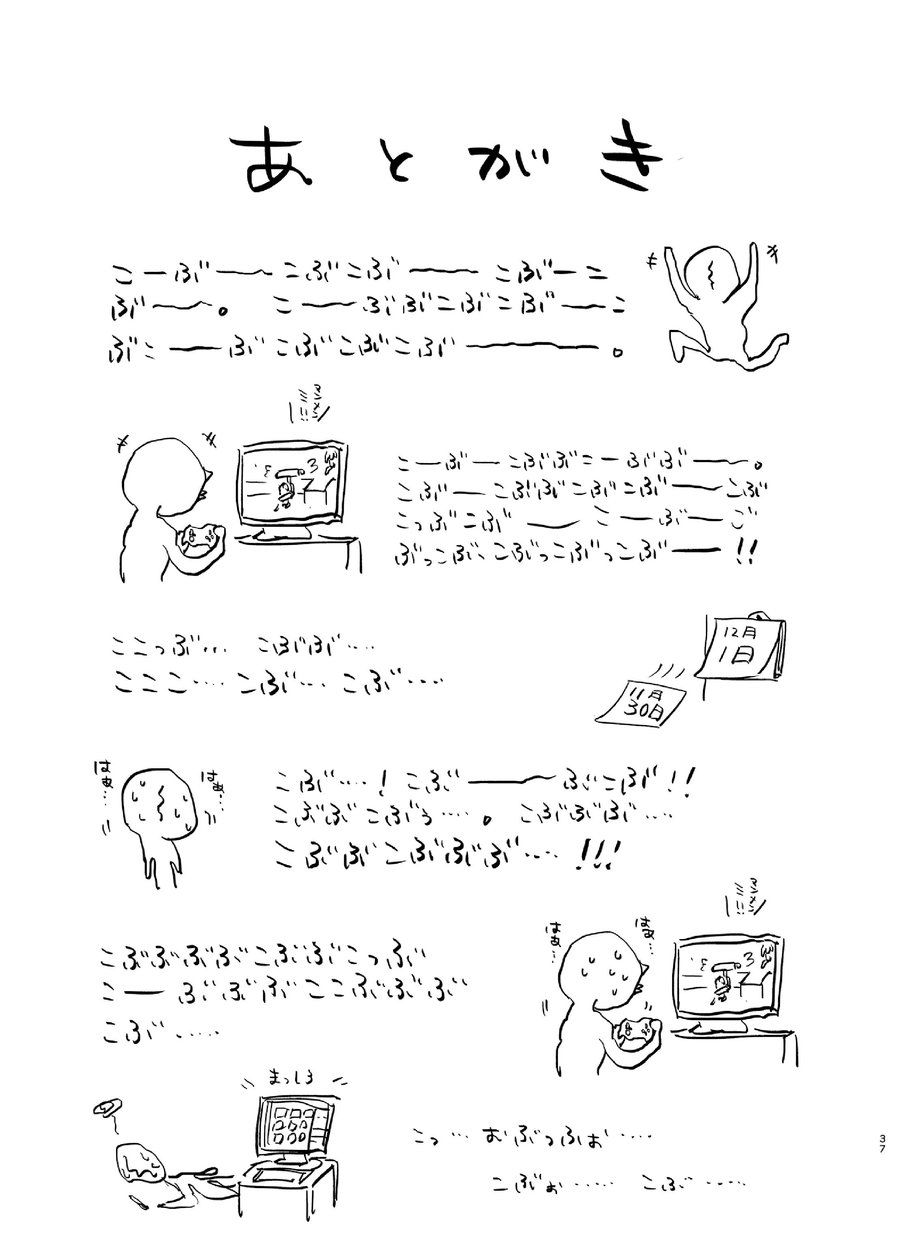 あとがき
こーぶ――こぶこぶ――こぶーこ
ぶ――。 こ――ぶぶこぶこぶ――こ
ぶこ――ぶこぶこぶこぶ――――。
こ―ぶ―こぶぶこーぶぶ――。
こぶ―こぶぶこぶこぶ――こぶ
こっぶこぶ―― こ―ぶ―ご
ぶっこぶ、こぶっこぶっこぶ――!!
ここっぶ… こぶぶ……
こここ…… こぶ… こぶ……
12月
1日
11月
30日
はぁ…
はぁ…
こぶ……! こぶ―――ぶこぶ!!
こぶぶこぶぅ……。 こぶぶぶ……
こぶぶこぶぶぶ……!!!
こぶぶぶぶこぶぶこっぶ
こ―― ぶぶぶここぶぶぶ
こぶ……
はぁ…
はぁ…
まっしろ
こっ… おぶっふぉ……
こぶぉ…… こぶ……
37